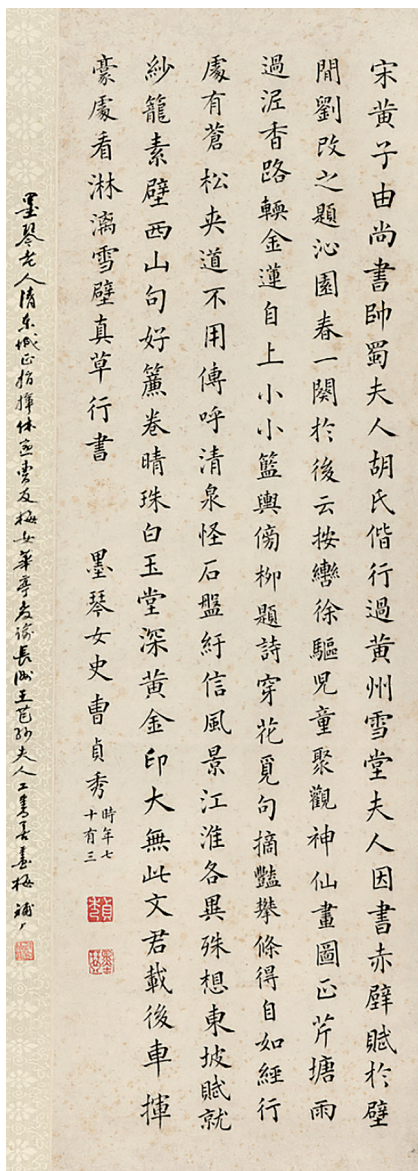 宋黃子由尚書帥蜀夫人胡氏偕行過黃州雪堂夫人因書赤壁賦於壁
閒劉改之題沁園春一闋於後云按轡徐驅兒童聚觀神仙畫圖正芹塘雨
過泥香路輭金蓮自上小小籃輿傍柳題詩穿花覓句摘豔攀條得自如經行
處有蒼松夾道不用傳呼清泉怪石盤紆信風景江淮各異殊想東坡賦就
紗籠素壁西山句好簾卷晴珠白玉堂深黃金印大無此文君載後車揮
豪處看淋漓雪壁真草行書
墨琴女史曹貞秀時年七
十有三
墨琴老人清東城正指揮休寧曹友梅女華亭教諭長洲王芑孫夫人工書善畫梅